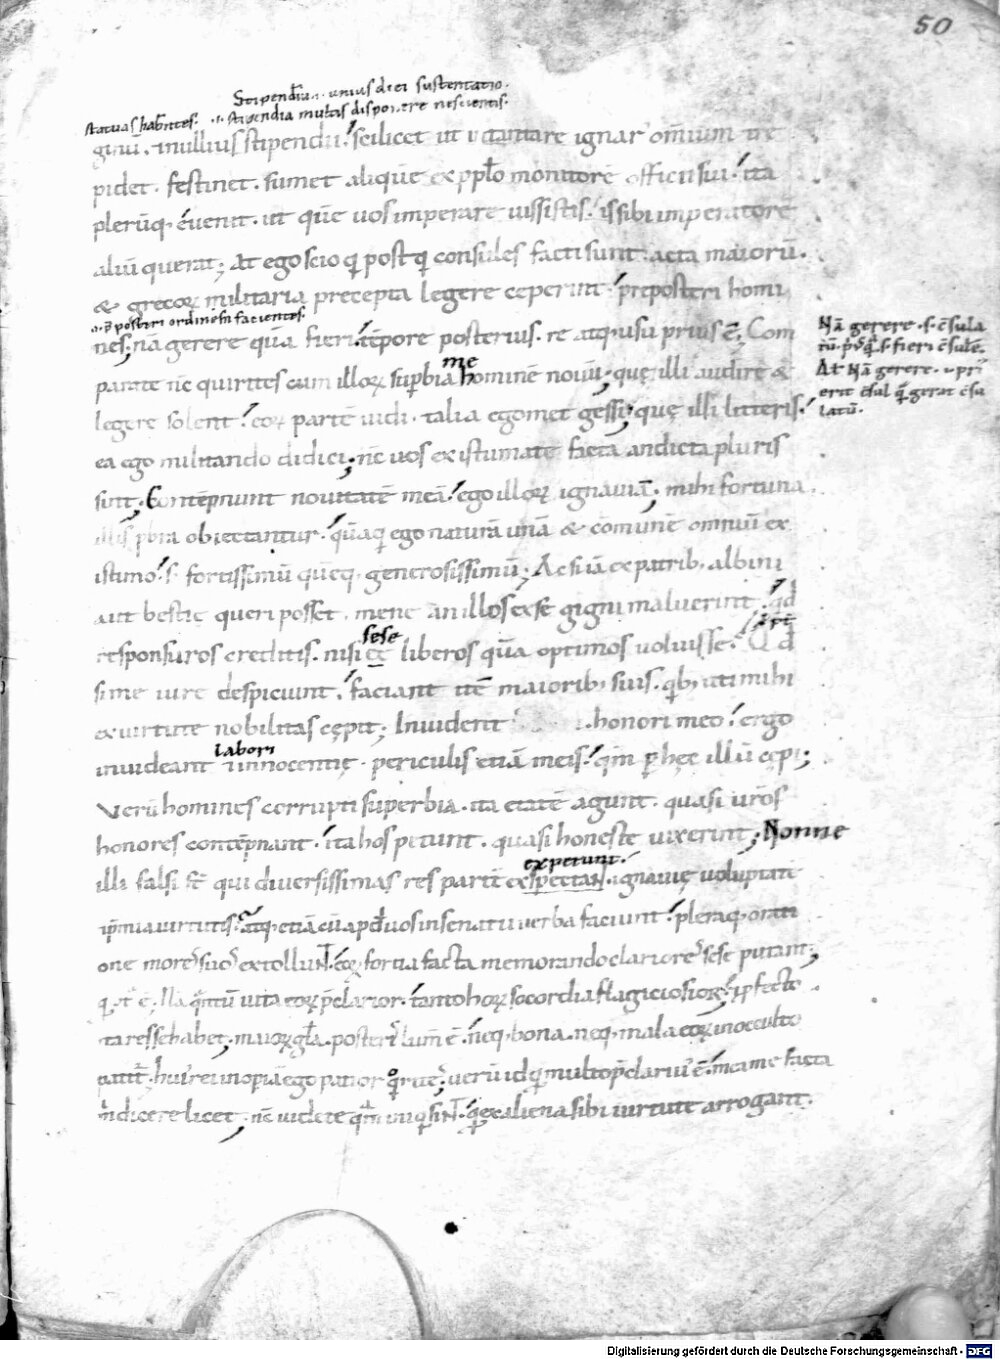 50
Stipendia .i. unius diei sustentatio.
statuas habentes. .i. stipendia multas disponere nescientis.
ginū. & nullius stipendii. scilicet ut in tantare ignar' omniū tre
pidet. festinet. sumet aliquē ex pplo monitorē officii sui. ita
plerūq; evenit. ut quē vos imperare iussistis. is sibi imperatorē
aliū querat; At ego scio q postq consules facti sunt. acta maiorū.
& grecoꝝ militaria precepta legere ceperint. preposteri homi
.i. p̄posteri ordinem facientes.
nes; nā gerere quā fieri. tēpore posterius. re atq; usu prius ē; Com
parate nc̄ quirites cum illoꝝ supbia me hominē novū; quę illi audire &
legere solent. eoꝝ partē vidi. talia egomet gessi; quę illi litteris.
ea ego militando didici; nc̄ vos existumate facta an dicta pluris
sint; Contēpnunt novitatē meā. ego illoꝝ ignaviā; mihi fortuna.
illis pbra obiectantur. quāq ego naturā unā & cōmunē omniū ex
istimo. s; fortissimū quēq; generosissimū; Ac si iā ex patrib; albini
aut bestię queri posset. mene an illos ex se gigni maluerint. qd
responsuros creditis. nisi sese liberos quā optimos voluisse. Qd
si me iure despiciunt. faciant itē maiorib; suis. qb; uti mihi
ex virtute nobilitas cępit; Invident honori meo. ergo
invideant labori & innocentię. periculis etiā meis. qm̄ p hęc illū cępi;
Verū homines corrupti superbia. ita etatē agunt. quasi vrōs
honores contēpnant. ita hos petunt. quasi honeste vixerint; Nonne
illi falsi st̄ qui diversissimas res parit̄ expectant expetunt. ignavię voluptatē
& p̄mia virtutis. atq; etiā cū apd vos in senatu verba faciunt. pleraq; orati
one mores suos extollunt. eoꝝ fortia facta memorando clariores sese putant;
Nā qntū vita eoꝝ p̄clarior. tanto hoꝝ socordia flagiciosior; & pfecto
ita res se habet; maioꝝ gla. posteris lum̄ ē. neq; bona. neq; mala eoꝝ in occulto
patit̄. hui' rei inopiā ego patior qrites; verū id qd multo p̄clari' ē. mea me facta
mihi dicere licet; nc̄ videte qm̄ iniqi sint. qd ex aliena sibi virtute arrogant.
Nā gerere .s. c̄sula
tū. p̄s q̄ .s. fieri c̄sulē.
At Nā gerere. .i. pri
erit c̄sul q̄ gerat c̄su
latū.
Digitalisierung gefördert durch die Deutsche Forschungsgemeinschaft - DFG